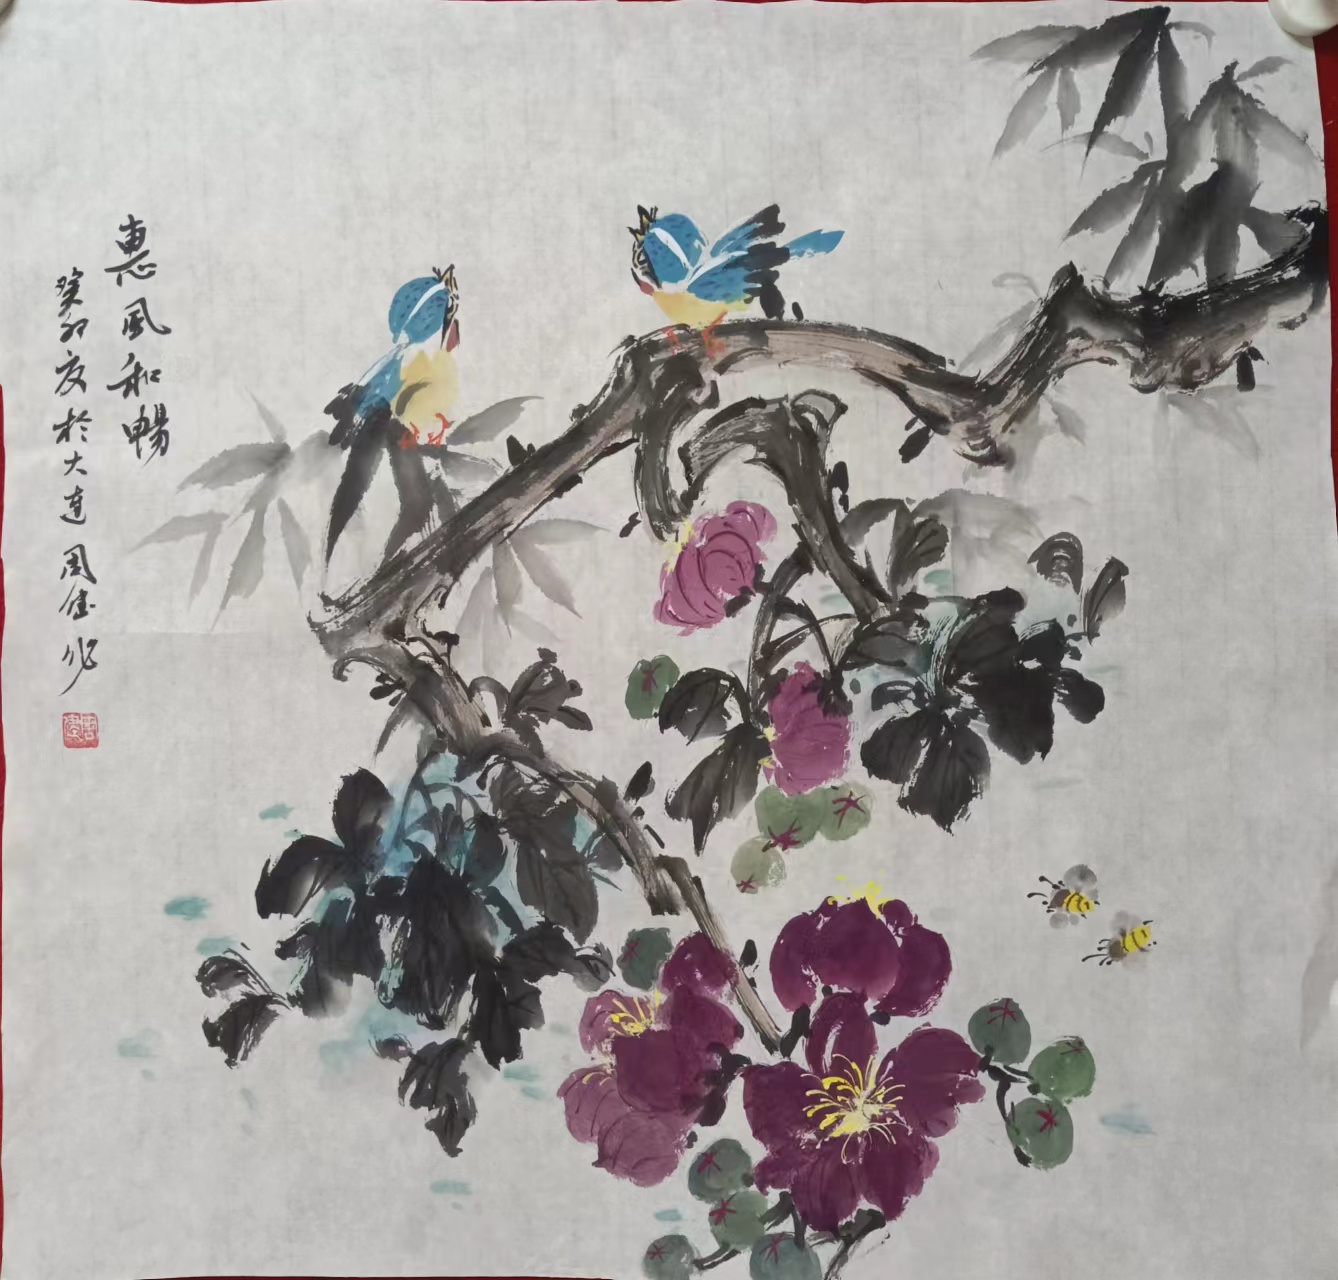 惠風和暢
癸卯夏於大連 周佳作